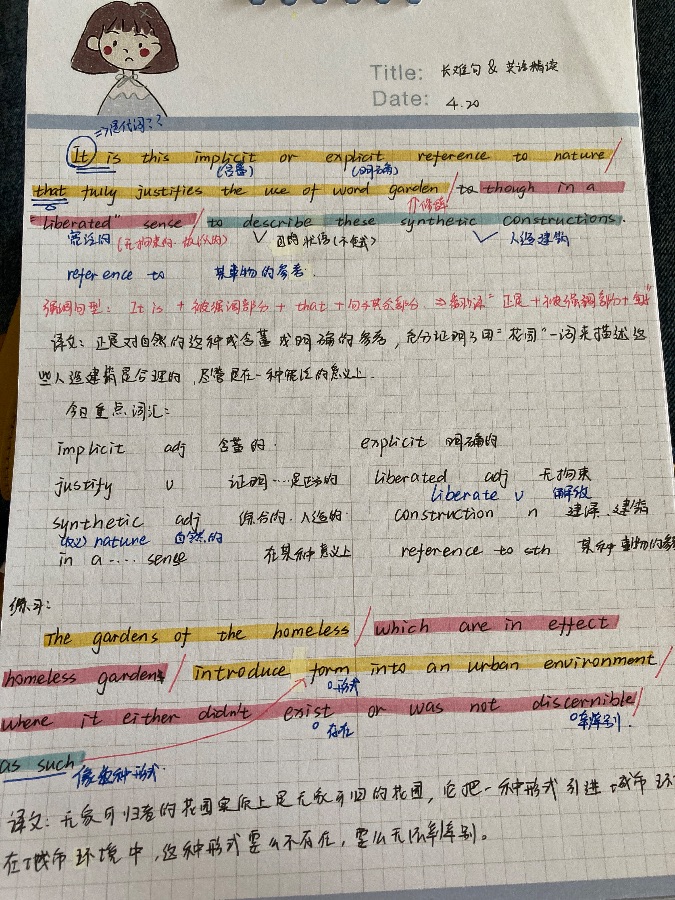 Title: 长难句 & 英语精读
Date: 4.20
=>是代词??
It is this implicit or explicit reference to nature/
(含蓄) (明确)
that fully justifies the use of word garden/to though in a
↑修饰
"liberated" sense/to describe these synthetic constructions.
宽泛的 (无拘束的. 放纵的) 人造建筑
reference to 某事物的参考.
强调句型: It is + 被强调部分 + that + 句子其余部分. => 翻译 "正是+被强调部分+
译文: 正是对自然的这种或含蓄或明确的参考, 充分证明了用"花园"一词来描述这
些人造建筑是合理的, 尽管是在一种宽泛的意义上.
今日重点词汇:
implicit adj 含蓄的. explicit 明确的
justify v 证明……是正当的 liberated adj 无拘束
liberate v 解放
synthetic adj 综合的. 人造的. construction n 建筑
(反) nature 自然的
in a .... sense 在某种意义上 reference to sth 某种事物的参
练习:
The gardens of the homeless/which are in effect
homeless gardens/introduce form into an urban environment/
形式
where it either didn't exist or was not discernible/
存在
as such
像这种形式.
译文: 无家可归者的花园实际上是无家可归的花园, 它把一种形式引进城市环
在城市环境中, 这种形式要么不存在, 要么无法